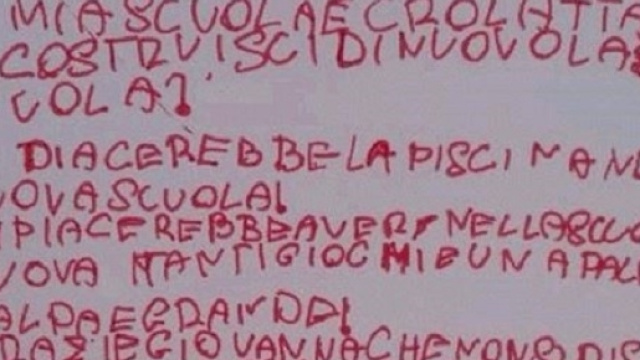 MIA SCUOLA E CROLATTA
COSTRUISCI DI NUOVO LA S
UOLA?
DIACEREBBE LA PISCINA NE
OVA SCUOLA!
PIACEREBBE AVERE NELLA SCUO
UOVA TANTI GIOCHI E UNA PALE
ALDA E GRANDE!
GRAZIE GIOVANNA CHE NON DIS